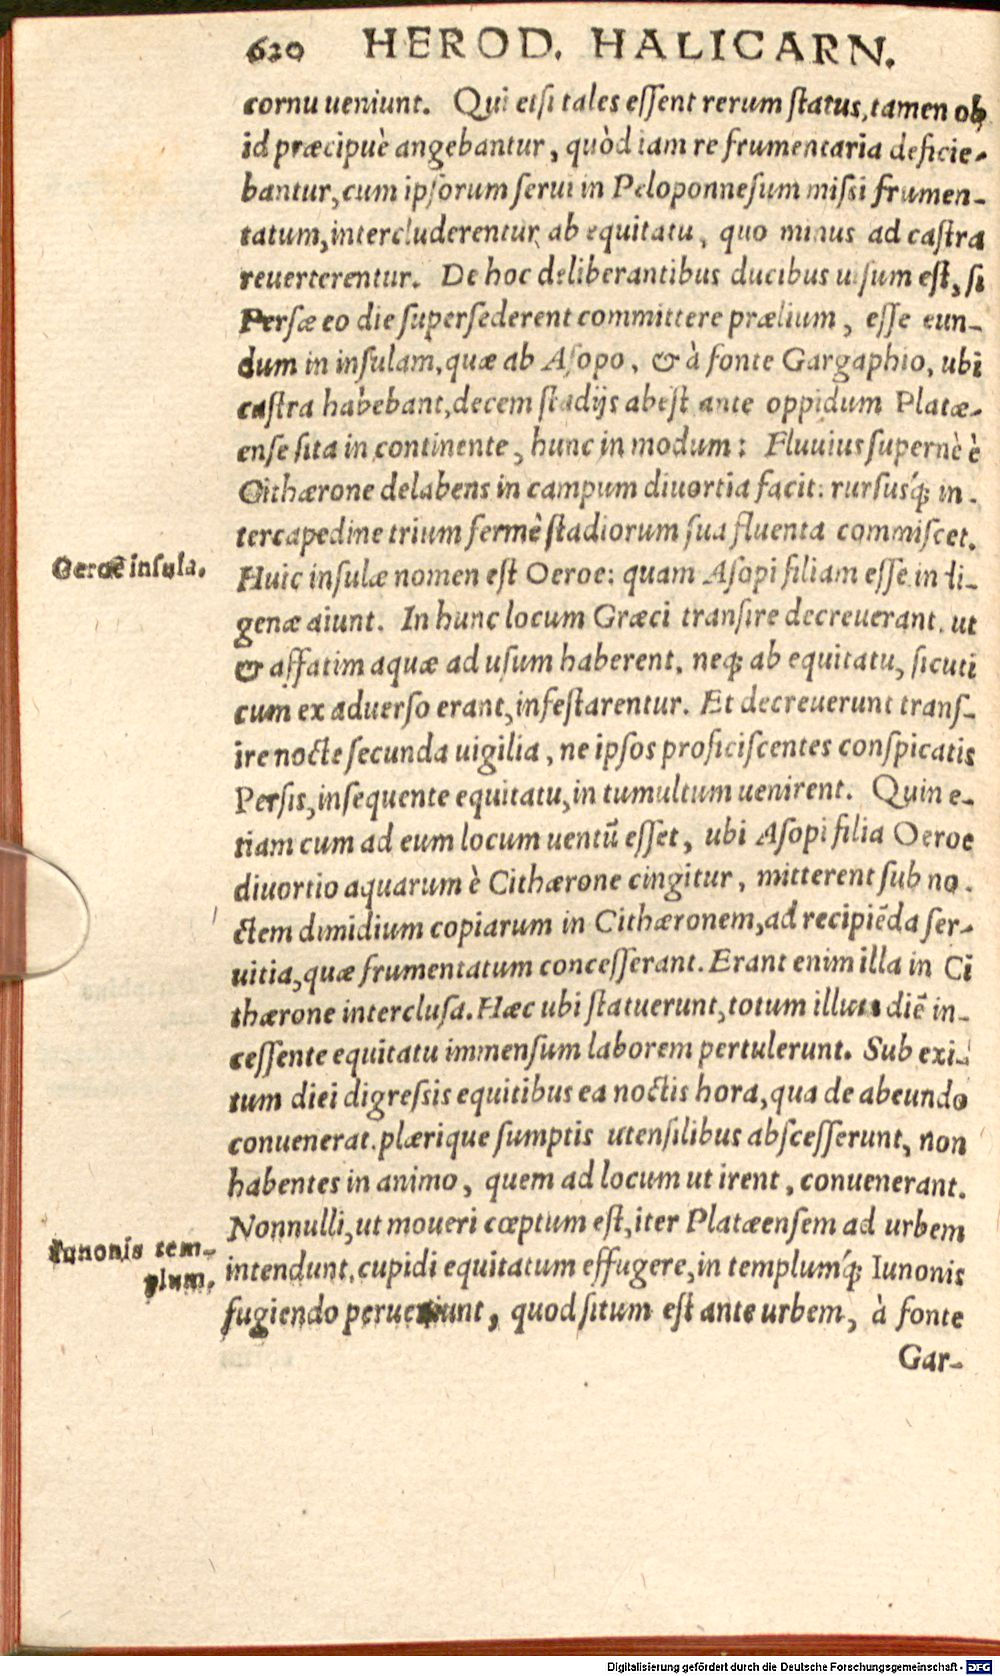 620 HEROD. HALICARN.
cornu ueniunt. Qui etsi tales eſſent rerum ſtatus, tamen ob
id præcipuè angebantur, quòd iam re frumentaria deficie-
bantur, cum ipſorum ſerui in Peloponneſum miſsi frumen-
tatum, intercluderentur ab equitatu, quo minus ad caſtra
reuerterentur. De hoc deliberantibus ducibus uiſum eſt, ſi
Perſæ eo die ſuperſederent committere prælium, eſſe eun-
dum in inſulam, quæ ab Aſopo, & à fonte Gargaphio, ubi
caſtra habebant, decem ſtadijs abeſt ante oppidum Platæ-
enſe ſita in continente, hunc in modum: Fluuius ſupernè è
Cithærone delabens in campum diuortia facit: rurſusq́; in-
tercapedine trium fermè ſtadiorum ſua fluenta commiſcet.
Oeroē inſula.
Huic inſulæ nomen eſt Oeroe: quam Aſopi filiam eſſe indi-
genæ aiunt. In hunc locum Græci tranſire decreuerant, ut
& affatim aquæ ad uſum haberent, neq; ab equitatu, ſicuti
cum ex aduerſo erant, infeſtarentur. Et decreuerunt tranſ-
ire nocte ſecunda uigilia, ne ipſos proficiſcentes conſpicatis
Perſis, inſequente equitatu, in tumultum uenirent. Quin e-
tiam cum ad eum locum uentū eſſet, ubi Aſopi filia Oeroe
diuortio aquarum è Cithærone cingitur, mitterent ſub no-
ctem dimidium copiarum in Cithæronem, ad recipiēda ſer-
uitia, quæ frumentatum conceſſerant. Erant enim illa in Ci
thærone intercluſa. Hæc ubi ſtatuerunt, totum illum diē in-
ceſſente equitatu immenſum laborem pertulerunt. Sub exi-
tum diei digreſsis equitibus ea noctis hora, qua de abeundo
conuenerat, plærique ſumptis utenſilibus abſceſſerunt, non
habentes in animo, quem ad locum ut irent, conuenerant.
Nonnulli, ut moueri cœptum eſt, iter Platæenſem ad urbem
Iunonis tem-
plum.
intendunt, cupidi equitatum effugere, in templumq́; Iunonis
fugiendo perueniunt, quod ſitum eſt ante urbem, à fonte
Gar-
Digitalisierung gefördert durch die Deutsche Forschungsgemeinschaft - DFG